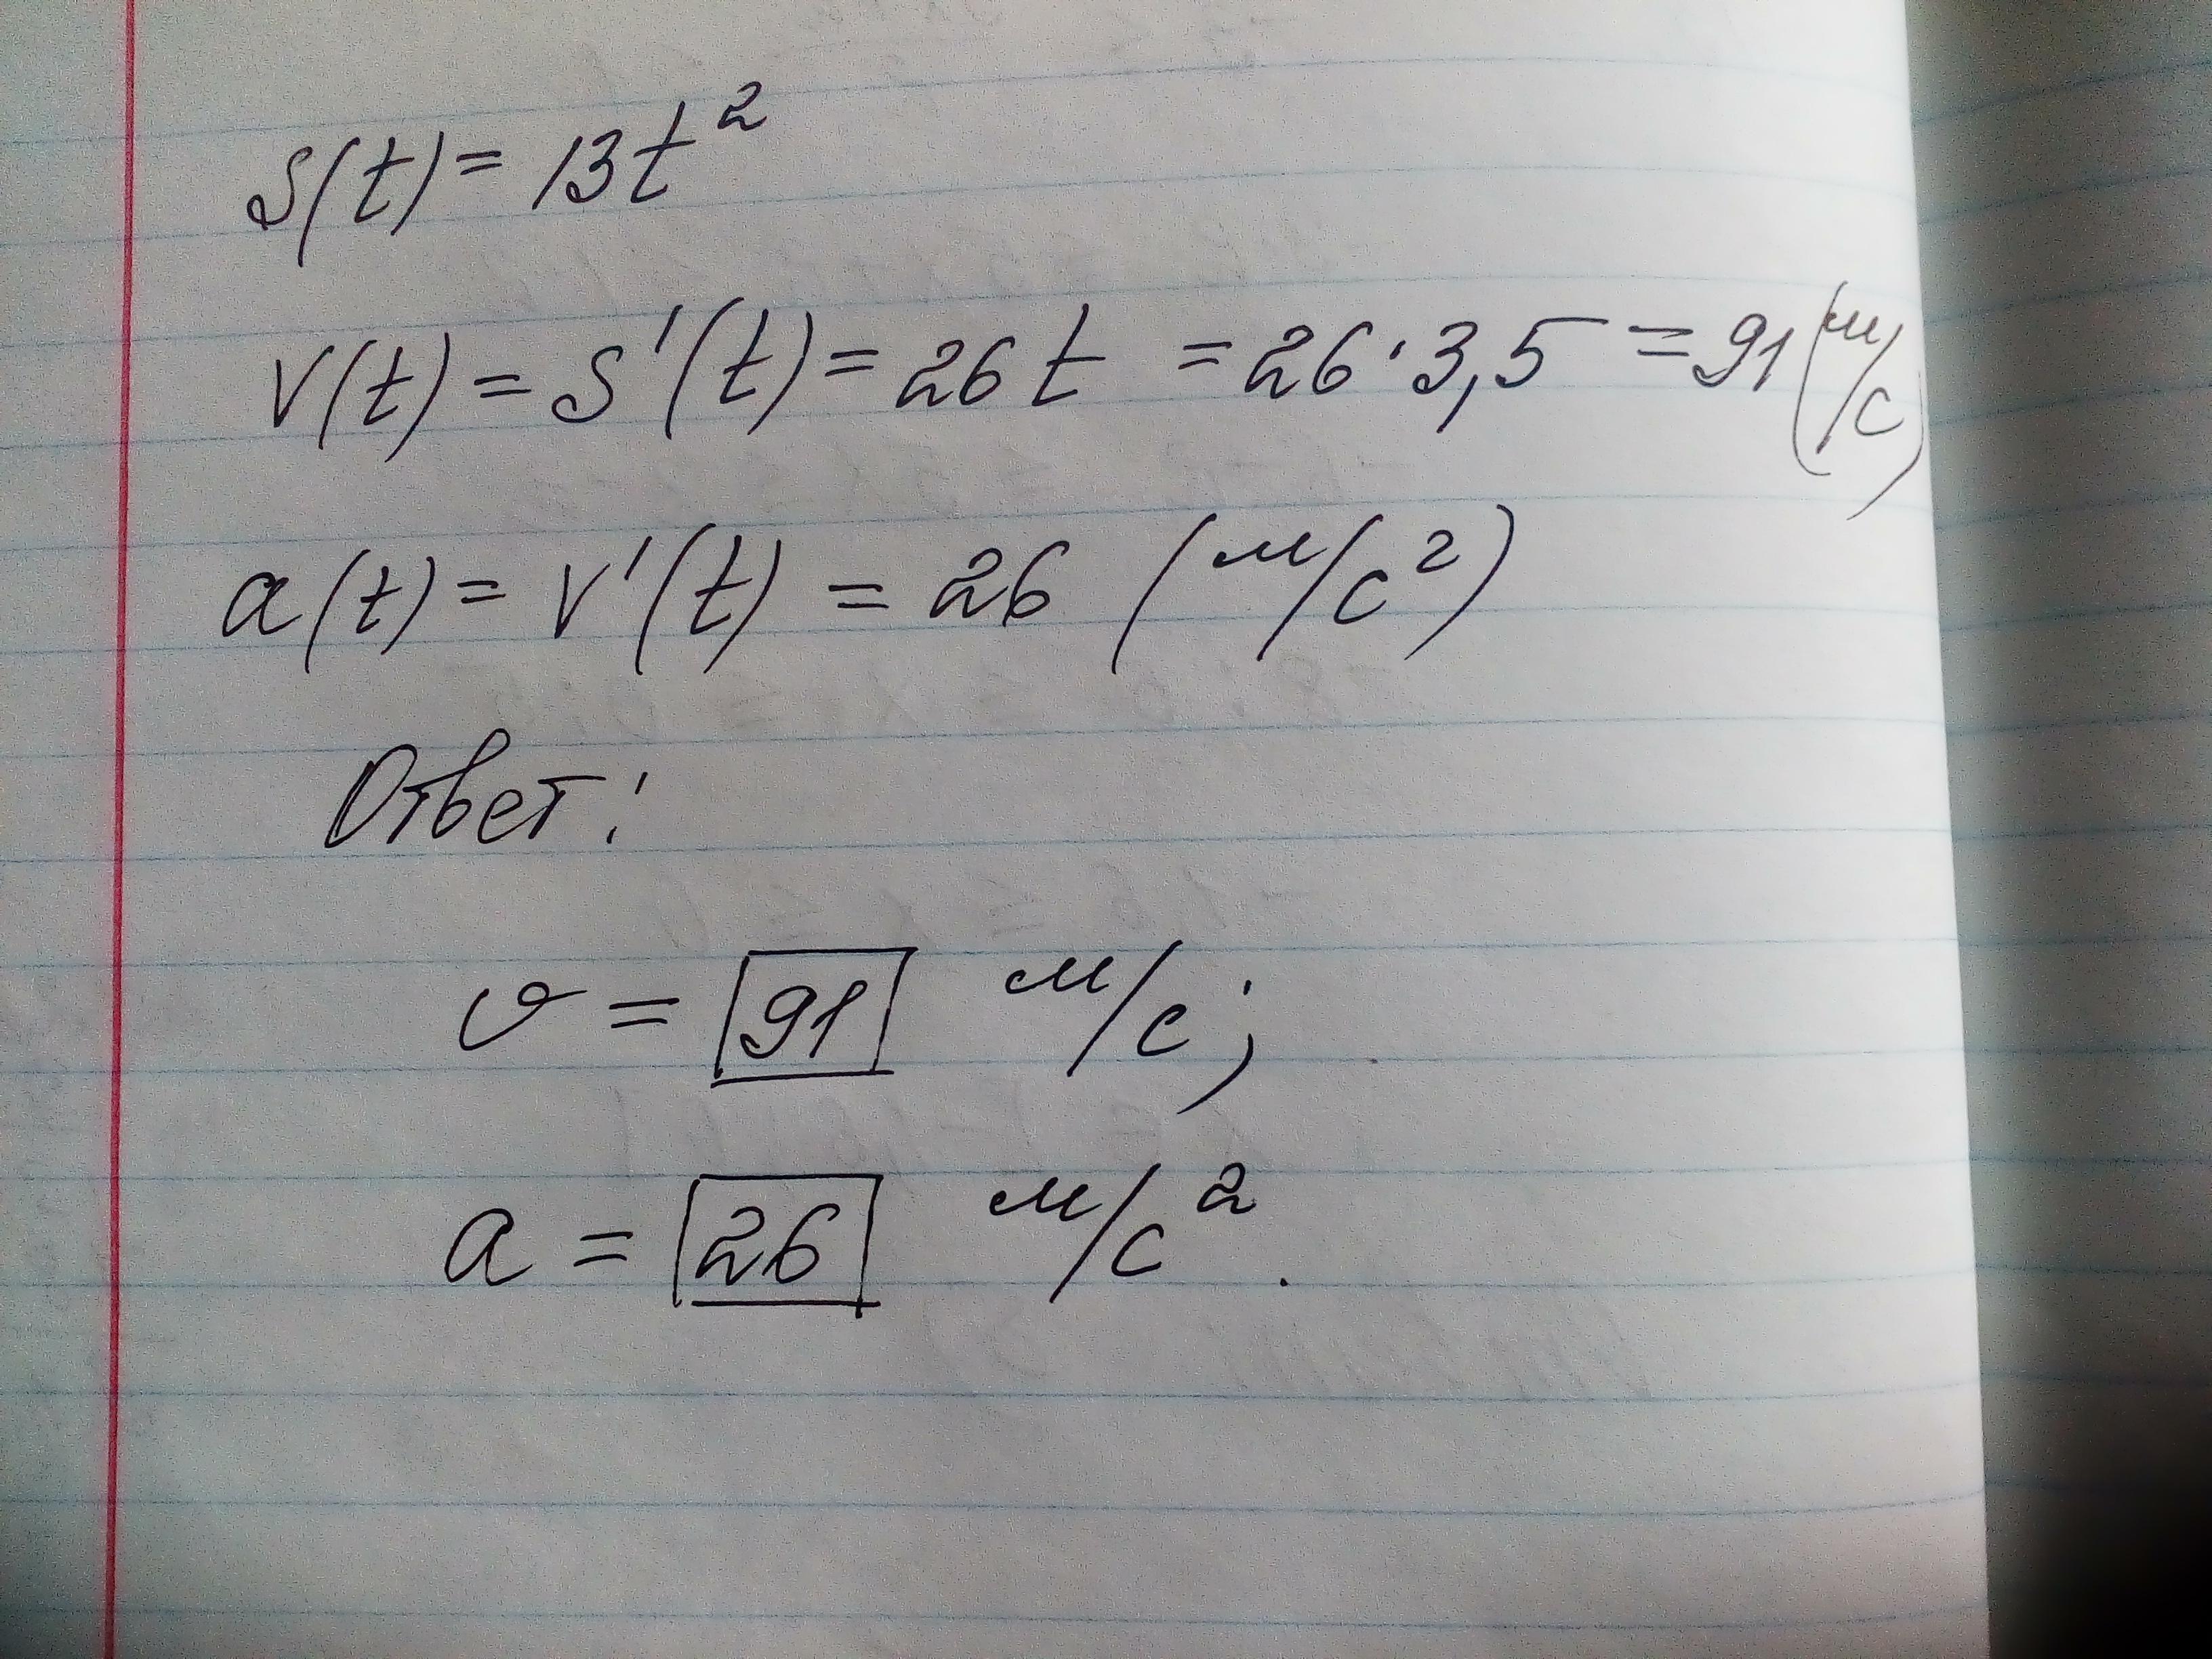 S(t) = 13t²
V(t) = S'(t) = 26t = 26·3,5 = 91 (м/с)
a(t) = V'(t) = 26 (м/с²)
Ответ:
v = 91 м/с;
a = 26 м/с².